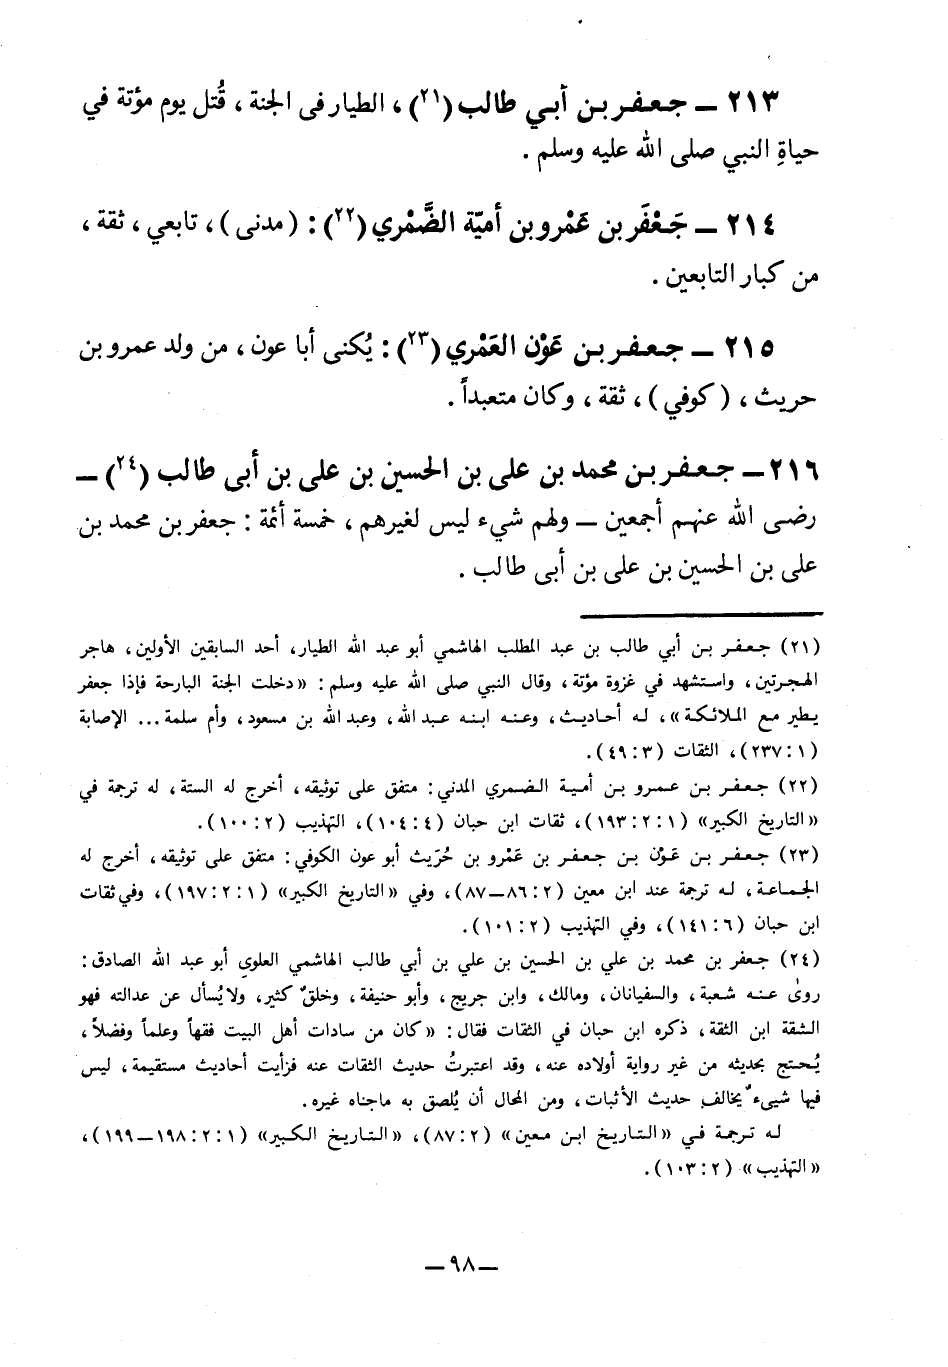 ٢١٣ ــ جعفر بن أبي طالب (٢١) ، الطيار فى الجنة ، قُتل يوم مؤتة في
حياةِ النبي صلى الله عليه وسلم .
٢١٤ ــ جَعْفَر بن عَمْرو بن أميّة الضَّمْري (٢٢) : (مدنى) ، تابعي ، ثقة ،
من كبار التابعين .
٢١٥ ــ جعفر بن عَوْن العَمْري (٢٣) : يُكنى أبا عون ، من ولد عمرو بن
حريث ، (كوفي) ، ثقة ، وكان متعبداً .
٢١٦ ــ جعفر بن محمد بن على بن الحسين بن على بن أبى طالب (٢٤) ــ
رضى الله عنهم أجمعين ــ ولهم شيء ليس لغيرهم ، خمسة أئمة : جعفر بن محمد بن
على بن الحسين بن على بن أبى طالب .
(٢١) جعفر بن أبي طالب بن عبد المطلب الهاشمي أبو عبد الله الطيار ، أحد السابقين الأولين ، هاجر
الهجرتين ، واستشهد في غزوة مؤتة ، وقال النبي صلى الله عليه وسلم : «دخلت الجنة البارحة فإذا جعفر
يطير مع الملائكة» ، له أحاديث ، وعنه ابنه عبد الله ، وعبد الله بن مسعود ، وأم سلمة ... الإصابة
(١ : ٢٣٧) ، الثقات (٣ : ٤٩) .
(٢٢) جعفر بن عمرو بن أمية الضمري المدني : متفق على توثيقه ، أخرج له الستة ، له ترجمة في
«التاريخ الكبير» (١ : ٢ : ١٩٣) ، ثقات ابن حبان (٤ : ١٠٤) ، التهذيب (٢ : ١٠٠) .
(٢٣) جعفر بن عَوْن بن جعفر بن عَمْرو بن حُرَيث أبو عون الكوفي : متفق على توثيقه ، أخرج له
الجماعة ، له ترجمة عند ابن معين (٢ : ٨٦ــ٨٧) ، وفي «التاريخ الكبير» (١ : ٢ : ١٩٧) ، وفي ثقات
ابن حبان (٦ : ١٤١) ، وفي التهذيب (٢ : ١٠١) .
(٢٤) جعفر بن محمد بن علي بن الحسين بن علي بن أبي طالب الهاشمي العلوي أبو عبد الله الصادق :
روىٰ عنه شعبة ، والسفيانان ، ومالك ، وابن جريج ، وأبو حنيفة ، وخلقٌ كثير ، ولا يُسأل عن عدالته فهو
الثقة ابن الثقة ، ذكره ابن حبان في الثقات فقال : «كان من سادات أهل البيت فقهاً وعلماً وفضلاً ،
يُحتج بحديثه من غير رواية أولاده عنه ، وقد اعتبرتُ حديث الثقات عنه فرأيت أحاديث مستقيمة ، ليس
فيها شيىءٌ يخالف حديث الأثبات ، ومن المحال أن يُلصق به ماجناه غيره .
له ترجمة في «التاريخ ابن معين» (٢ : ٨٧) ، «التاريخ الكبير» (١ : ٢ : ١٩٨ــ١٩٩) ،
«التهذيب» (٢ : ١٠٣) .
ــ ٩٨ ــ